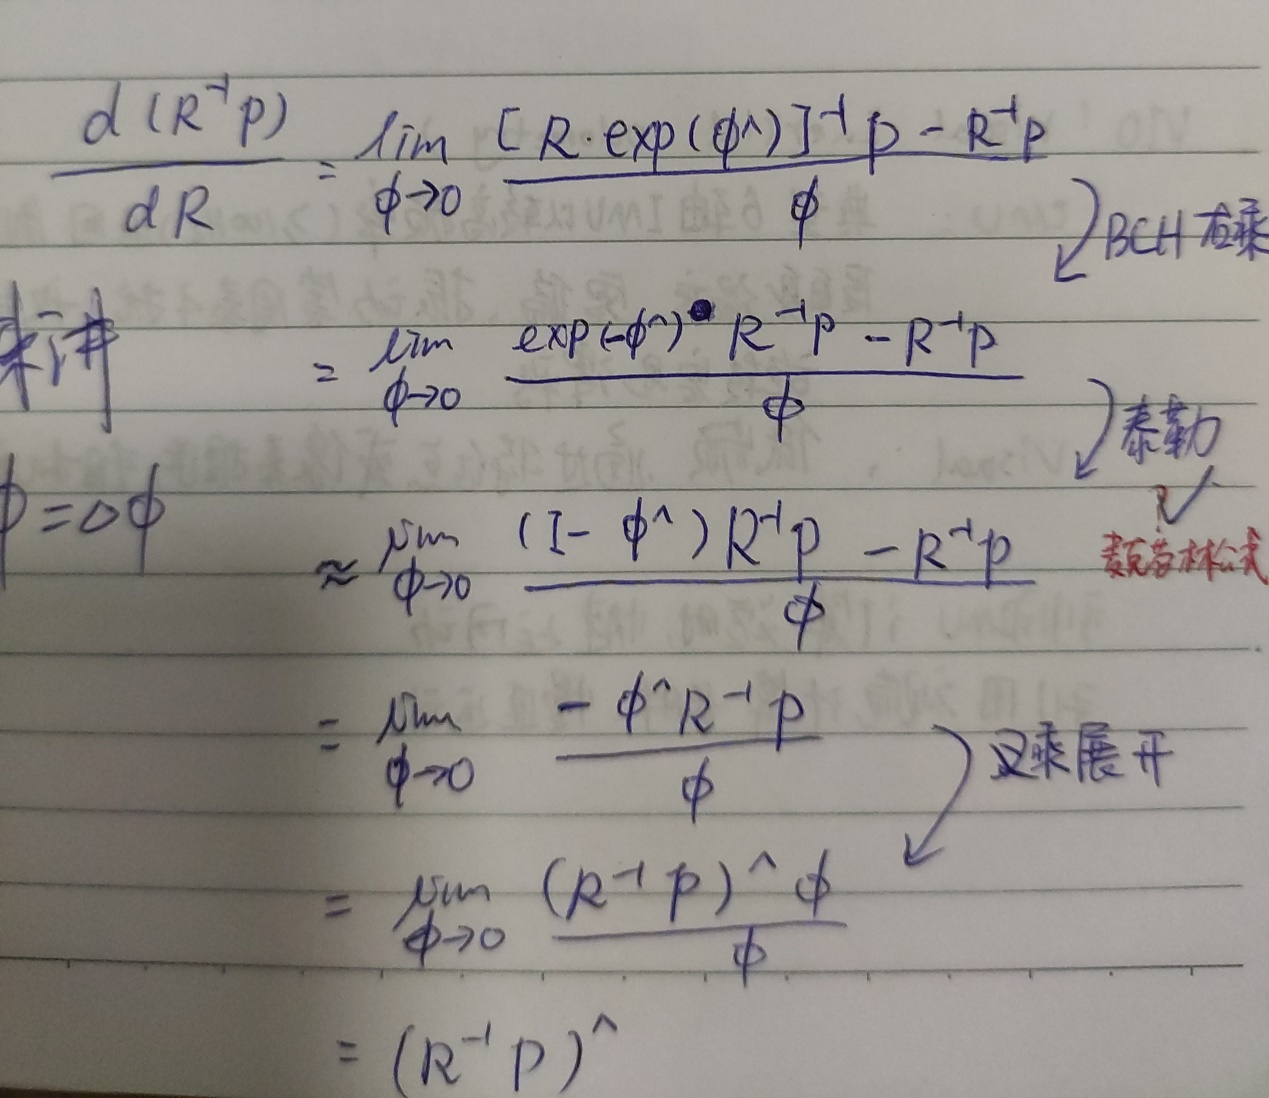 d(R⁻¹p)/dR = lim_{φ→0} [R·exp(φ^)]⁻¹p - R⁻¹p / φ
BCH 右乘
= lim_{φ→0} exp(-φ^) R⁻¹p - R⁻¹p / φ
泰勒
φ=△φ
≈ lim_{φ→0} (I - φ^)R⁻¹p - R⁻¹p / φ
麦克劳林公式
= lim_{φ→0} -φ^R⁻¹p / φ
叉乘展开
= lim_{φ→0} (R⁻¹p)^φ / φ
= (R⁻¹p)^